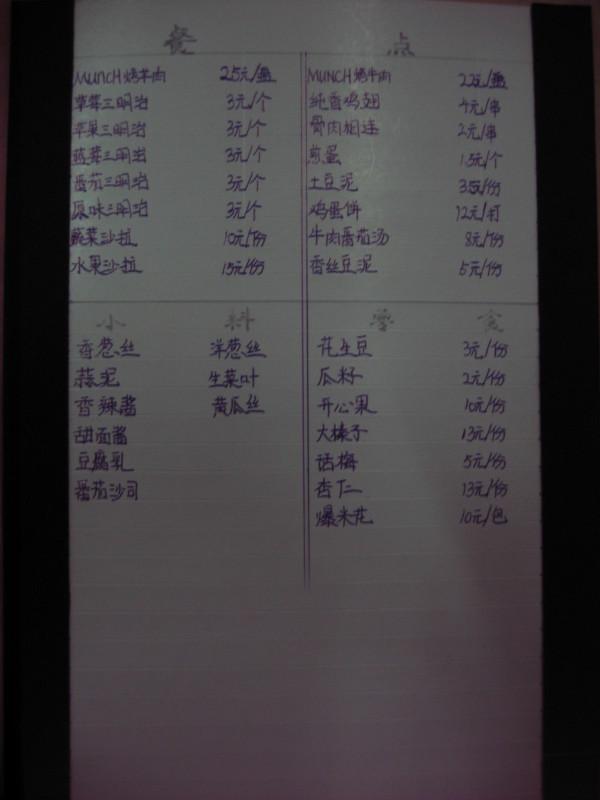 餐 点
MUNCH烤羊肉 25元/盘
草莓三明治 3元/个
苹果三明治 3元/个
蓝莓三明治 3元/个
番茄三明治 3元/个
原味三明治 3元/个
蔬菜沙拉 10元/份
水果沙拉 15元/份
MUNCH烤牛肉
纯香鸡翅 4元/串
骨肉相连 2元/串
煎蛋 1.5元/个
土豆泥
鸡蛋饼 12元/打
牛肉番茄汤 8元/份
香丝豆泥 5元/份
小 料
香葱丝 洋葱丝
蒜泥 生菜叶
香辣酱 黄瓜丝
甜面酱
豆腐乳
番茄沙司
零 食
花生豆 3元/份
瓜籽 2元/份
开心果 10元/份
大榛子 13元/份
话梅 5元/份
杏仁 13元/份
爆米花 10元/包